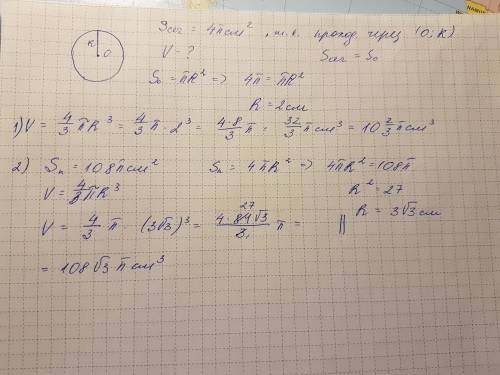 R
O
Sсеч = 4π см², т.к. проход. через (O; R)
V - ?
Sсеч = S₀
S₀ = πR² => 4π = πR²
R = 2 см
1) V = 4/3 πR³ = 4/3 π · 2³ = 4·8/3 π = 32/3 π см³ = 10 2/3 π см³
2) Sп = 108π см²
Sп = 4πR² => 4πR² = 108π
V = 4/3 πR³
R² = 27
R = 3√3 см
V = 4/3 π · (3√3)³ = 4·81√3/3 π =
27
1
= 108√3 π см³